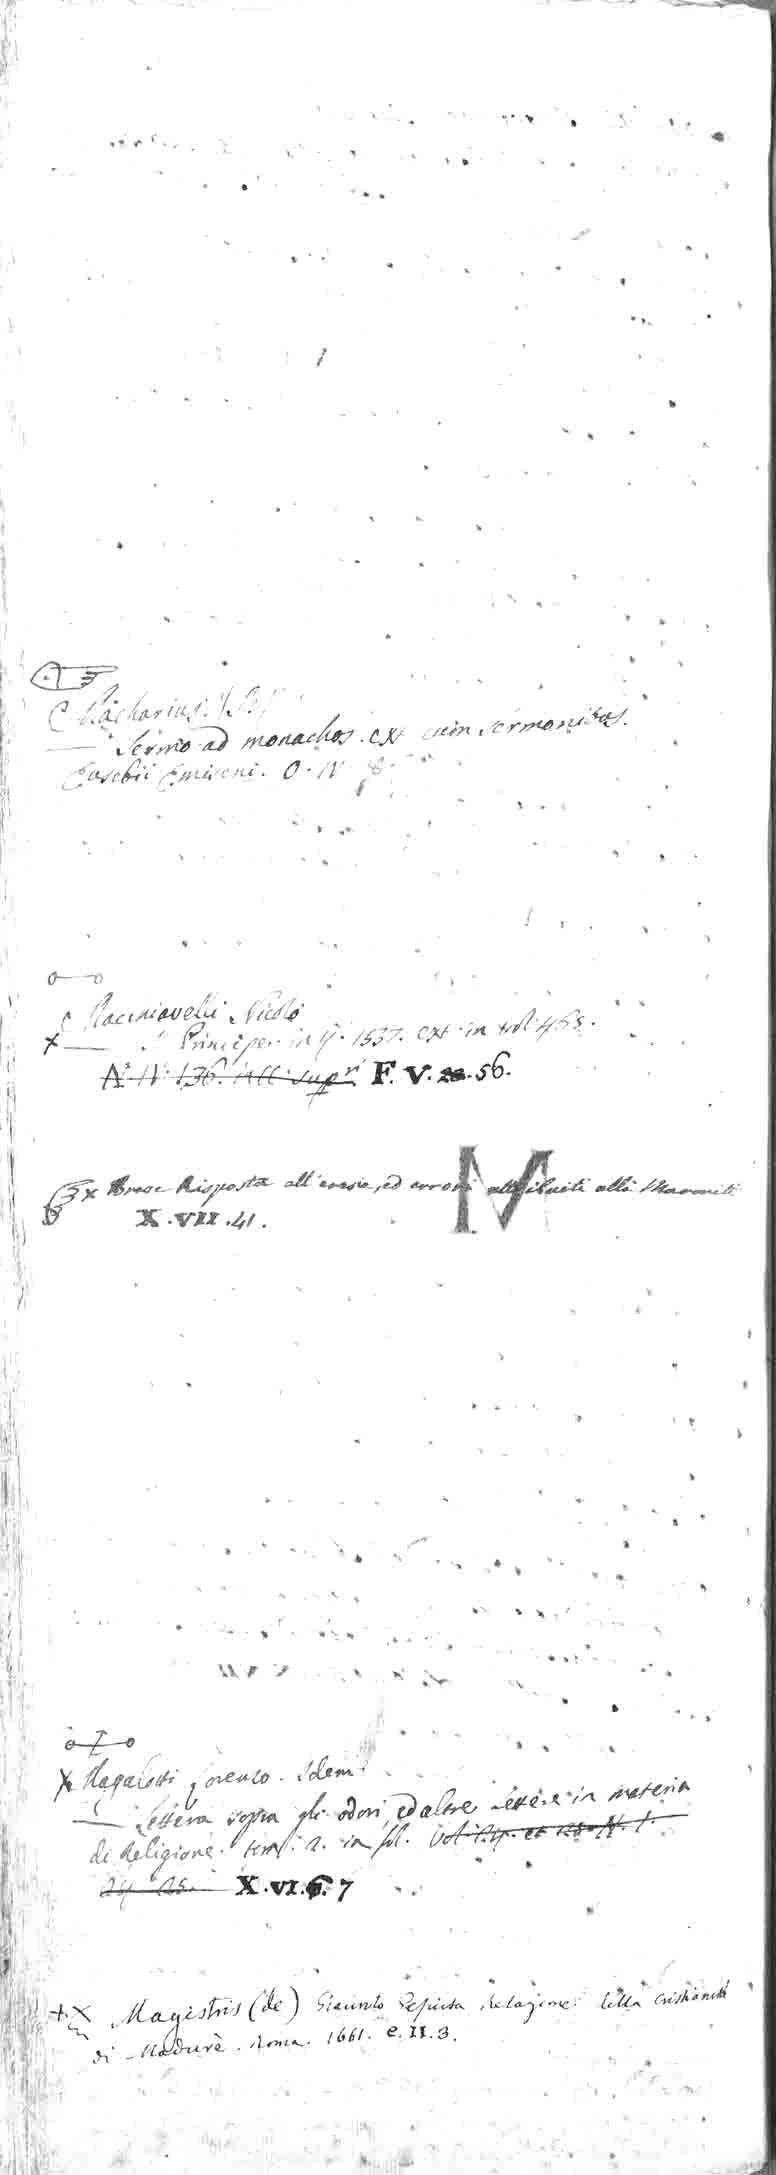 Macharius.
Sermo ad monachos. ext cum sermonibus
Eusebii Emiseni. O. IV
Macniavelli Nicolò
x Principe. in 4. 1537. ext. in vol. 465.
A. IV. 136. F. V. 56.
x Breve Risposta all'eresie, ed errori attribuiti alli Maroniti
M
X. VII. 41.
x Magalotti Lorenzo. Idem
Lettera sopra gli odori, ed altre Lettere in materia
di Religione. tom. 2. in fol. Vol. 24. et 25. N. 1.
24 25. X. VI. 6. 7
+ X Magistris (de) Giacinto Gesuita Relazione della Cristianità
di Madurè. Roma. 1661. e. II. 3.